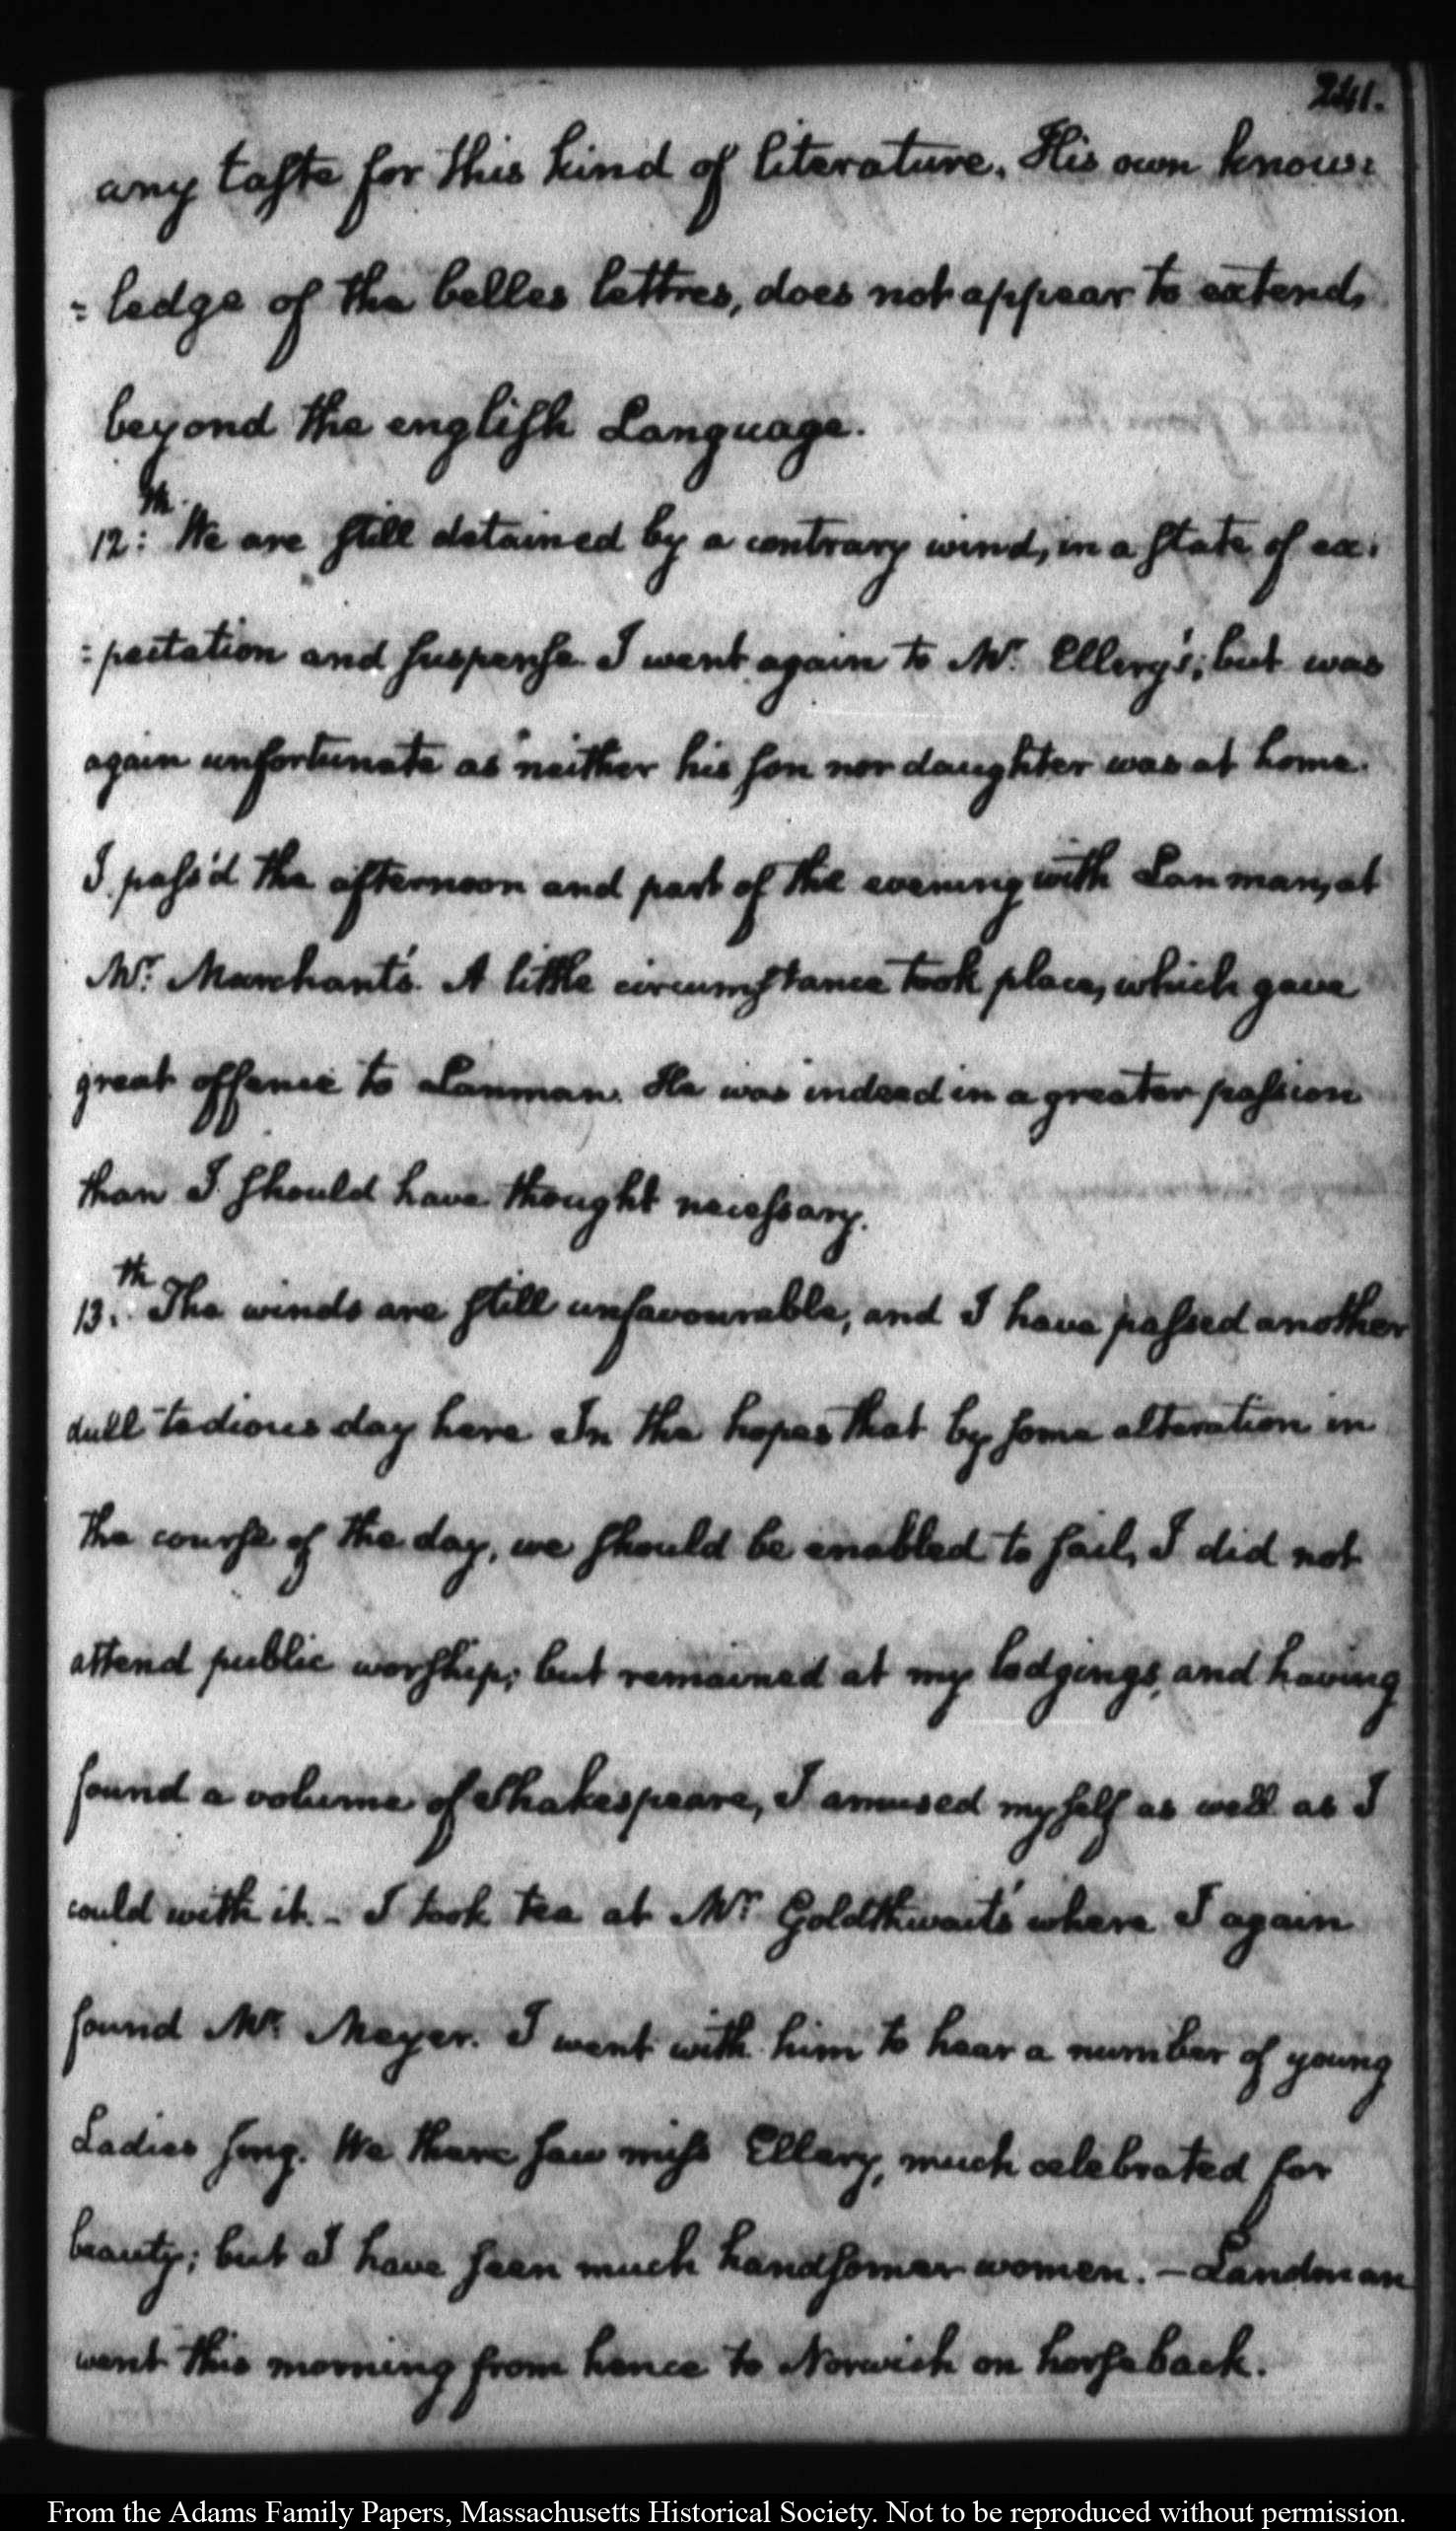 241.
any taste for this kind of literature. His own know=
=ledge of the belles lettres, does not appear to extend,
beyond the english Language.
12:th. We are still detained by a contrary wind, in a state of ex=
=pectation and suspense. I went again to Mr. Ellery's; but was
again unfortunate as neither his son nor daughter was at home.
I pass'd the afternoon and part of the evening with Lanman, at
Mr. Marchant's. A little circumstance took place, which gave
great offence to Lanman. He was indeed in a greater passion
than I should have thought necessary.
13.th The winds are still unfavourable, and I have passed another
dull tedious day here In the hopes that by some alteration in
the course of the day, we should be enabled to sail, I did not
attend public worship; but remained at my lodgings, and having
found a volume of Shakespeare, I amused myself as well as I
could with it. - I took tea at Mr Goldthwait's where I again
found Mr. Meyer. I went with him to hear a number of young
Ladies sing. We there saw miss Ellery, much celebrated for
beauty; but I have seen much handsomer women. - Landman
went this morning from hence to Norwich on horseback.
From the Adams Family Papers, Massachusetts Historical Society. Not to be reproduced without permission.